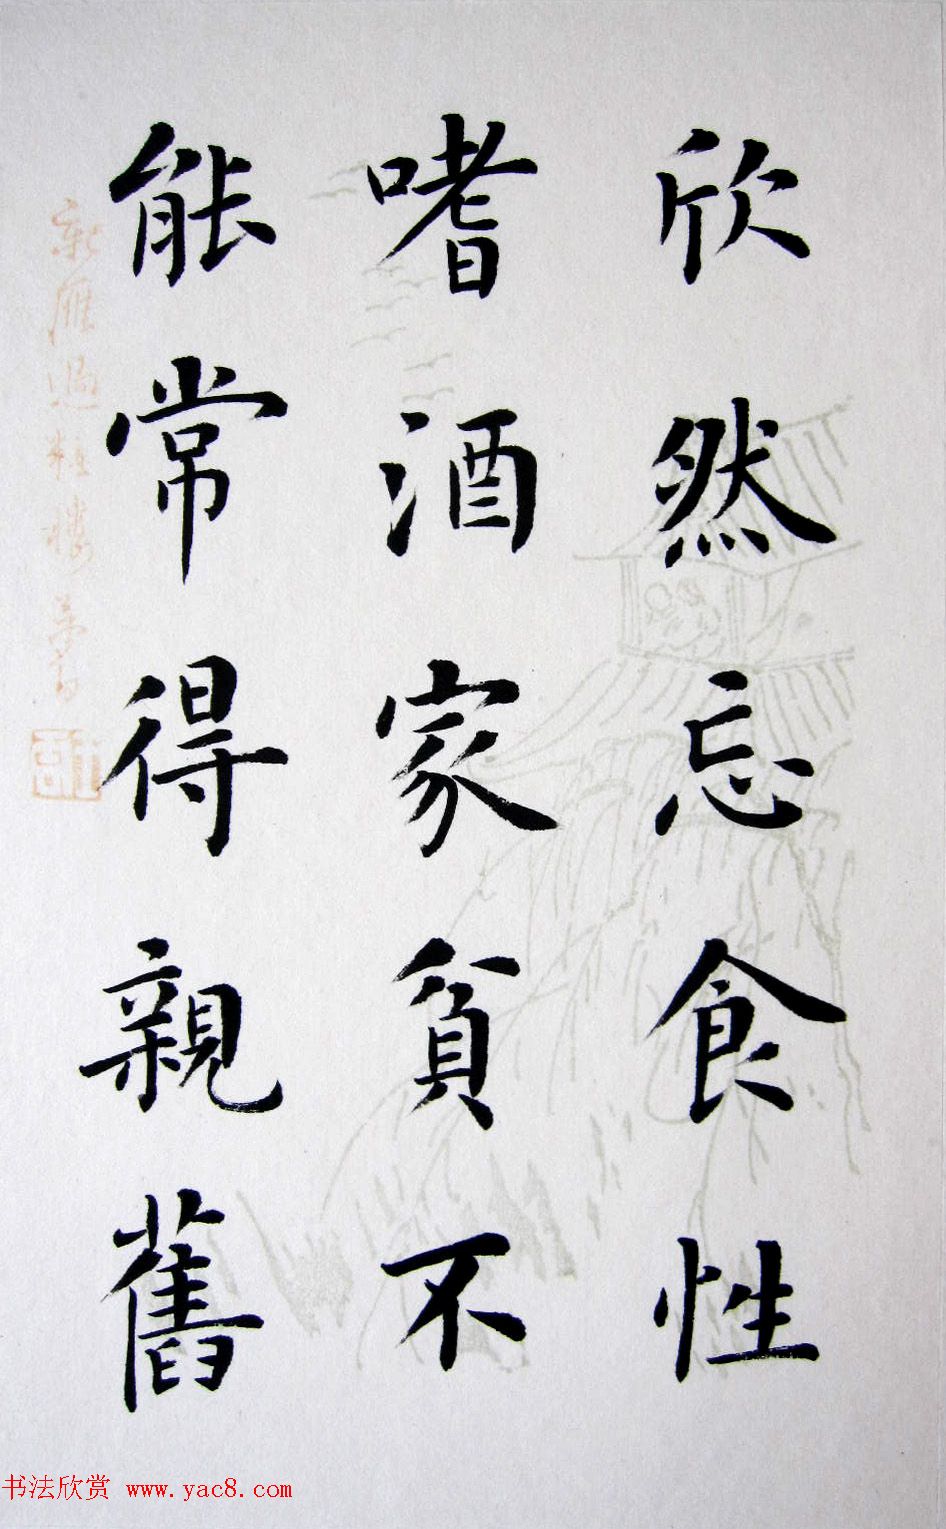 欣然忘食性
嗜酒家貧不
能常得親舊
新雁過妝樓
书法欣赏 www.yac8.com